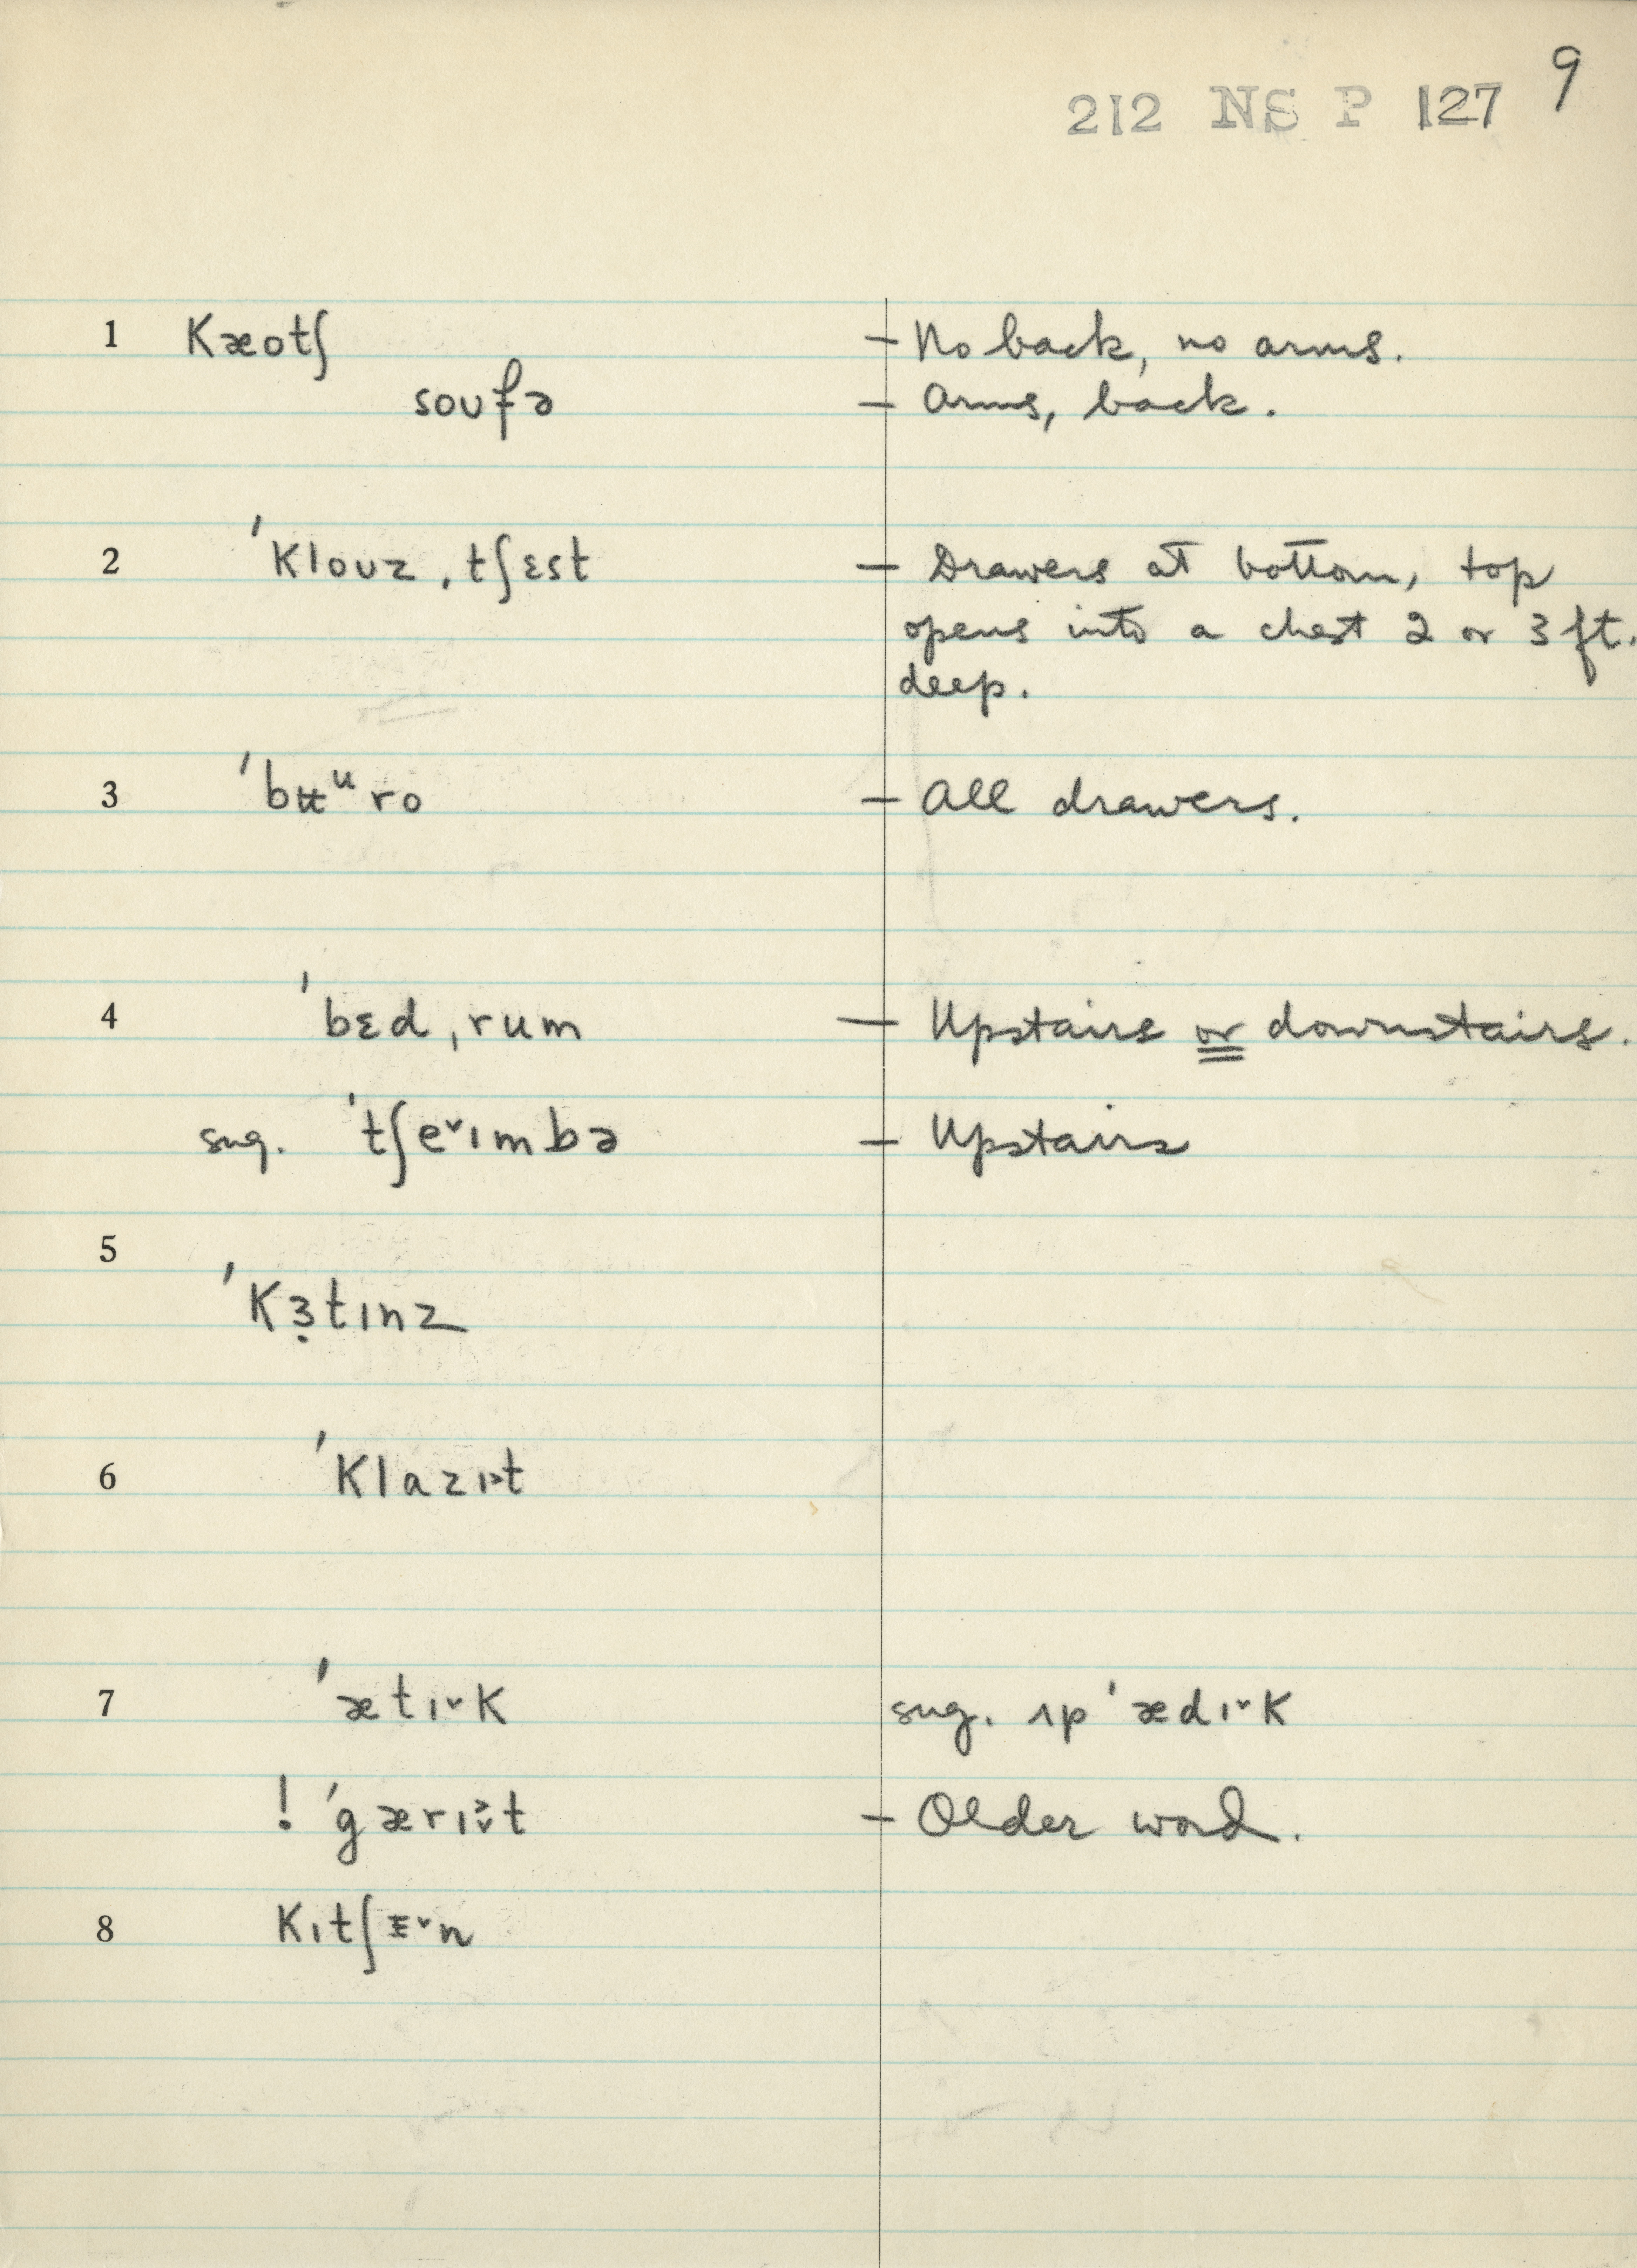 212 NS P 127 9
1 Kæotʃ – No back, no arms.
soufə – Arms, back.
2 ˈKlouz ˌtʃɛst – Drawers at bottom, top
opens into a chest 2 or 3 ft.
deep.
3 ˈbʉᵘro – All drawers.
4 ˈbɛdˌrum – Upstairs or downstairs.
sug. ˈtʃe˅ɪmbə – Upstairs
5
ˈKɜ̣tɪnz
6 ˈKlazɪ˃t
7 ˈætɪ˅K sug. ʌpˈædɪ˅K
! ˈgærɪ˅̑t – Older word.
8 Kɪtʃɪ˅n